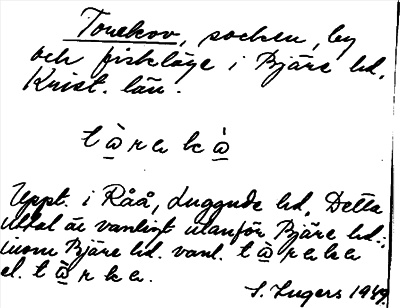 Torekov, socken, by
och fiskläge i Bjäre hd,
Krist. län.
t à̲ r e k á̲
Uppt. i Råå, Luggude hd. Detta
uttal är vanligt utanför Bjäre hd.;
inom Bjäre hd. vanl. t à̲ r e k e
el. t à̲ r k e.
I. Ingers 1949.